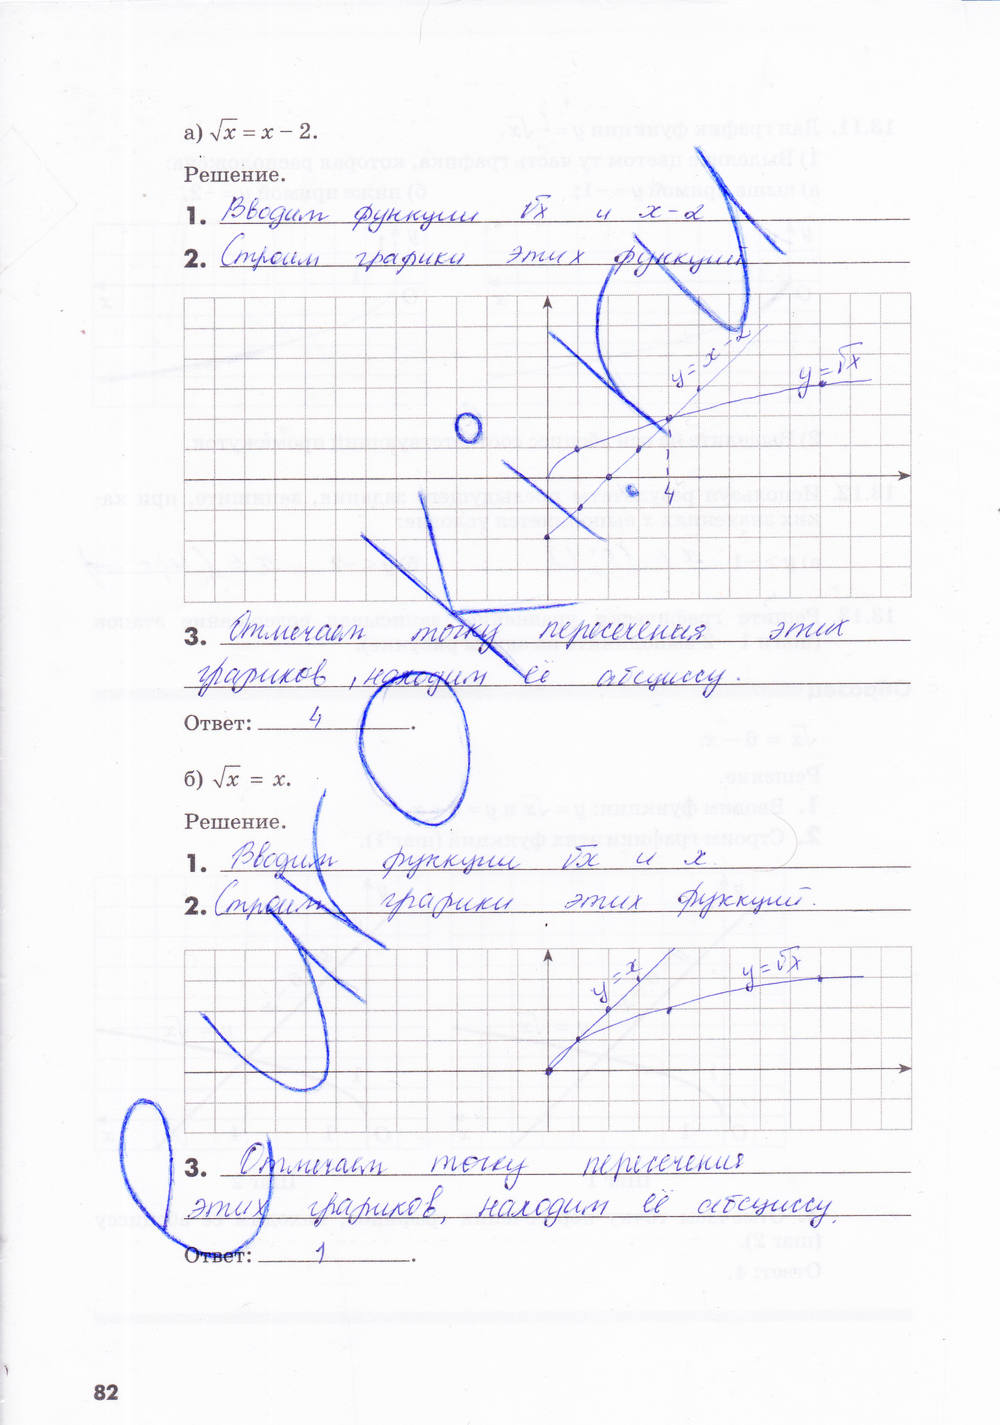 а) √x = x − 2.
Решение.
1. Вводим функции √x и x−2
2. Строим графики этих функций
y = x − 2
y = √x
4
3. Отмечаем точку пересечения этих
графиков, находим её абсциссу.
Ответ: 4.
б) √x = x.
Решение.
1. Вводим функции √x и x.
2. Строим графики этих функций.
y = x
y = √x
3. Отмечаем точку пересечения
этих графиков, находим её абсциссу.
Ответ: 1.
82